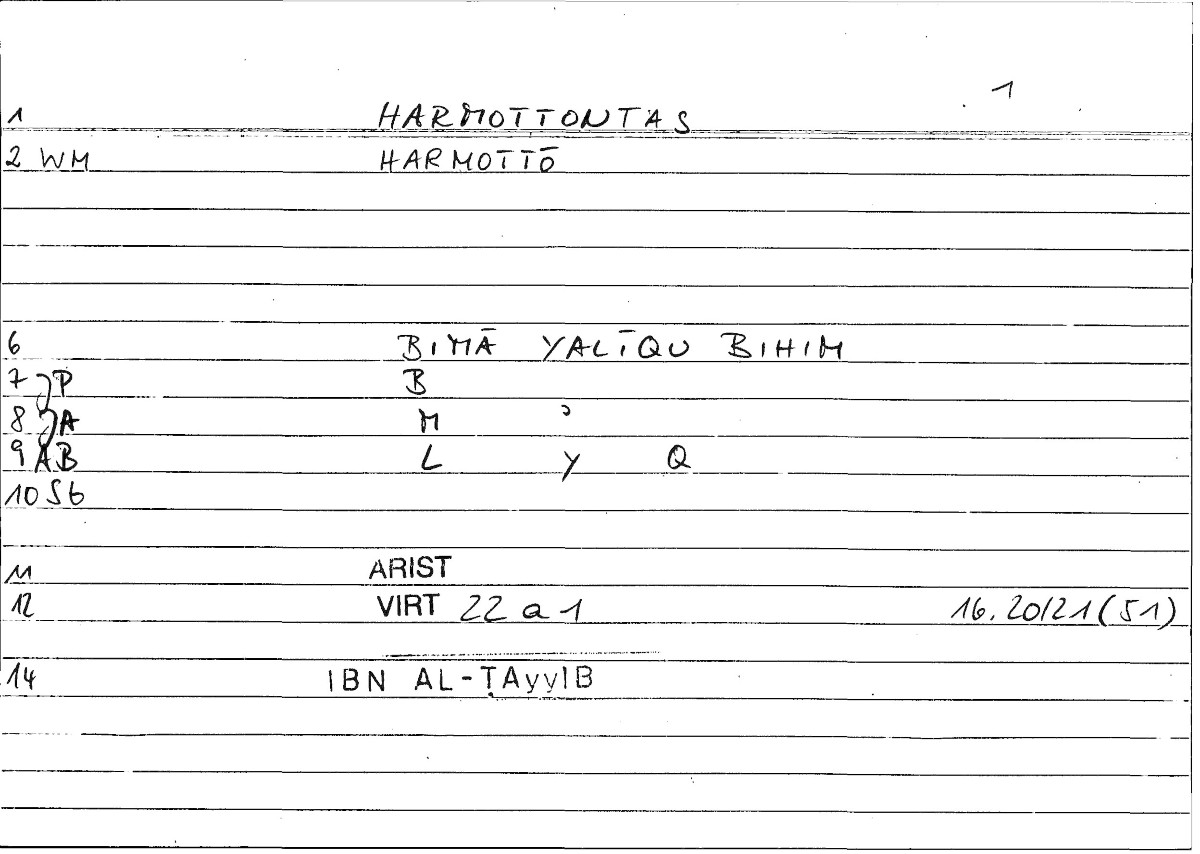 1
1 HARMOTTONTAS
2 WM HARMOTTŌ
6 BIMĀ YALĪQU BIHIM
7 P B
8 A M ʾ
9 AB L Y Q
10 Sb
11 ARIST
12 VIRT 22 a 1 16.20/21(51)
14 IBN AL-ṬAyyIB